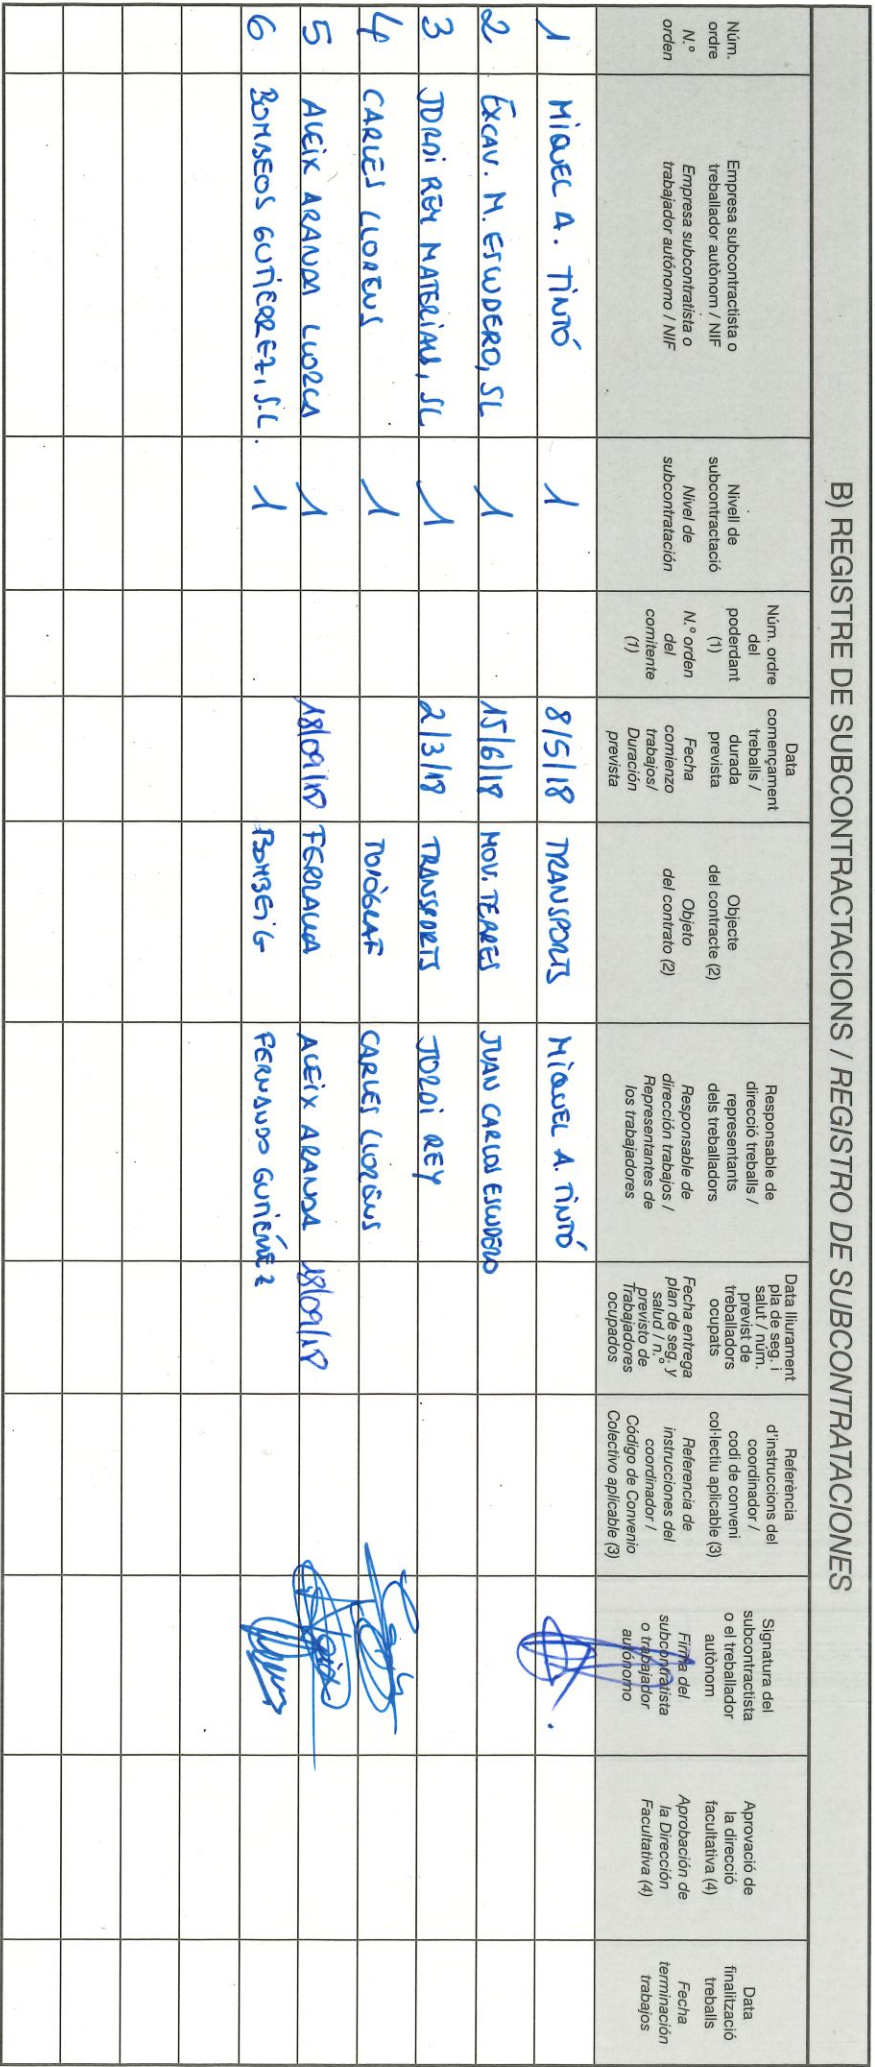 B) REGISTRE DE SUBCONTRACTACIONS / REGISTRO DE SUBCONTRATACIONES
Núm.
ordre
N.º
orden
Empresa subcontractista o
treballador autònom / NIF
Empresa subcontratista o
trabajador autónomo / NIF
Nivell de
subcontractació
Nivel de
subcontratación
Núm. ordre
del
poderdant
(1)
N.º orden
del
comitente
(1)
Data
començament
treballs /
durada
prevista
Fecha
comienzo
trabajos/
Duración
prevista
Objecte
del contracte (2)
Objeto
del contrato (2)
Responsable de
direcció treballs /
representants
dels treballadors
Responsable de
dirección trabajos /
Representantes de
los trabajadores
Data lliurament
pla de seg. i
salut / núm.
previst de
treballadors
ocupats
Fecha entrega
plan de seg. y
salud / n.º
previsto de
Trabajadores
ocupados
Referència
d'instruccions del
coordinador /
codi de conveni
col·lectiu aplicable (3)
Referencia de
instrucciones del
coordinador /
Código de Convenio
Colectivo aplicable (3)
Signatura del
subcontractista
o el treballador
autònom
Firma del
subcontratista
o trabajador
autónomo
Aprovació de
la direcció
facultativa (4)
Aprobación de
la Dirección
Facultativa (4)
Data
finalització
treballs
Fecha
terminación
trabajos
1 MIQUEL A. TINTÓ 1 8/5/18 TRANSPORTS MIQUEL A. TINTÓ
2 EXCAV. M. ESCUDERO, SL 1 15/6/18 MOV. TERRES JUAN CARLOS ESCUDERO
3 JORDI REY MATERIALS, SL 1 2/3/18 TRANSPORTS JORDI REY
4 CARLES LLORENS 1 TOPÒGRAF CARLES LLORENS
5 ALEIX ARANDA LLORCA 1 18/09/18 FERRALLA ALEIX ARANDA 18/09/18
6 BOMBEOS GUTIERREZ, S.L. 1 BOMBEIG FERNANDO GUTIÉRREZ